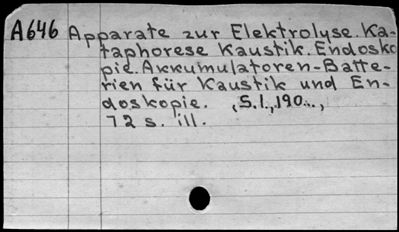 A646 Apparate zur Elektrolyse. Ka-
taphorese Kaustik. Endosko
pie. Akkumulatoren-Batte-
rien für Kaustik und En-
doskopie. , S.l., 190..,
72 s. ill.